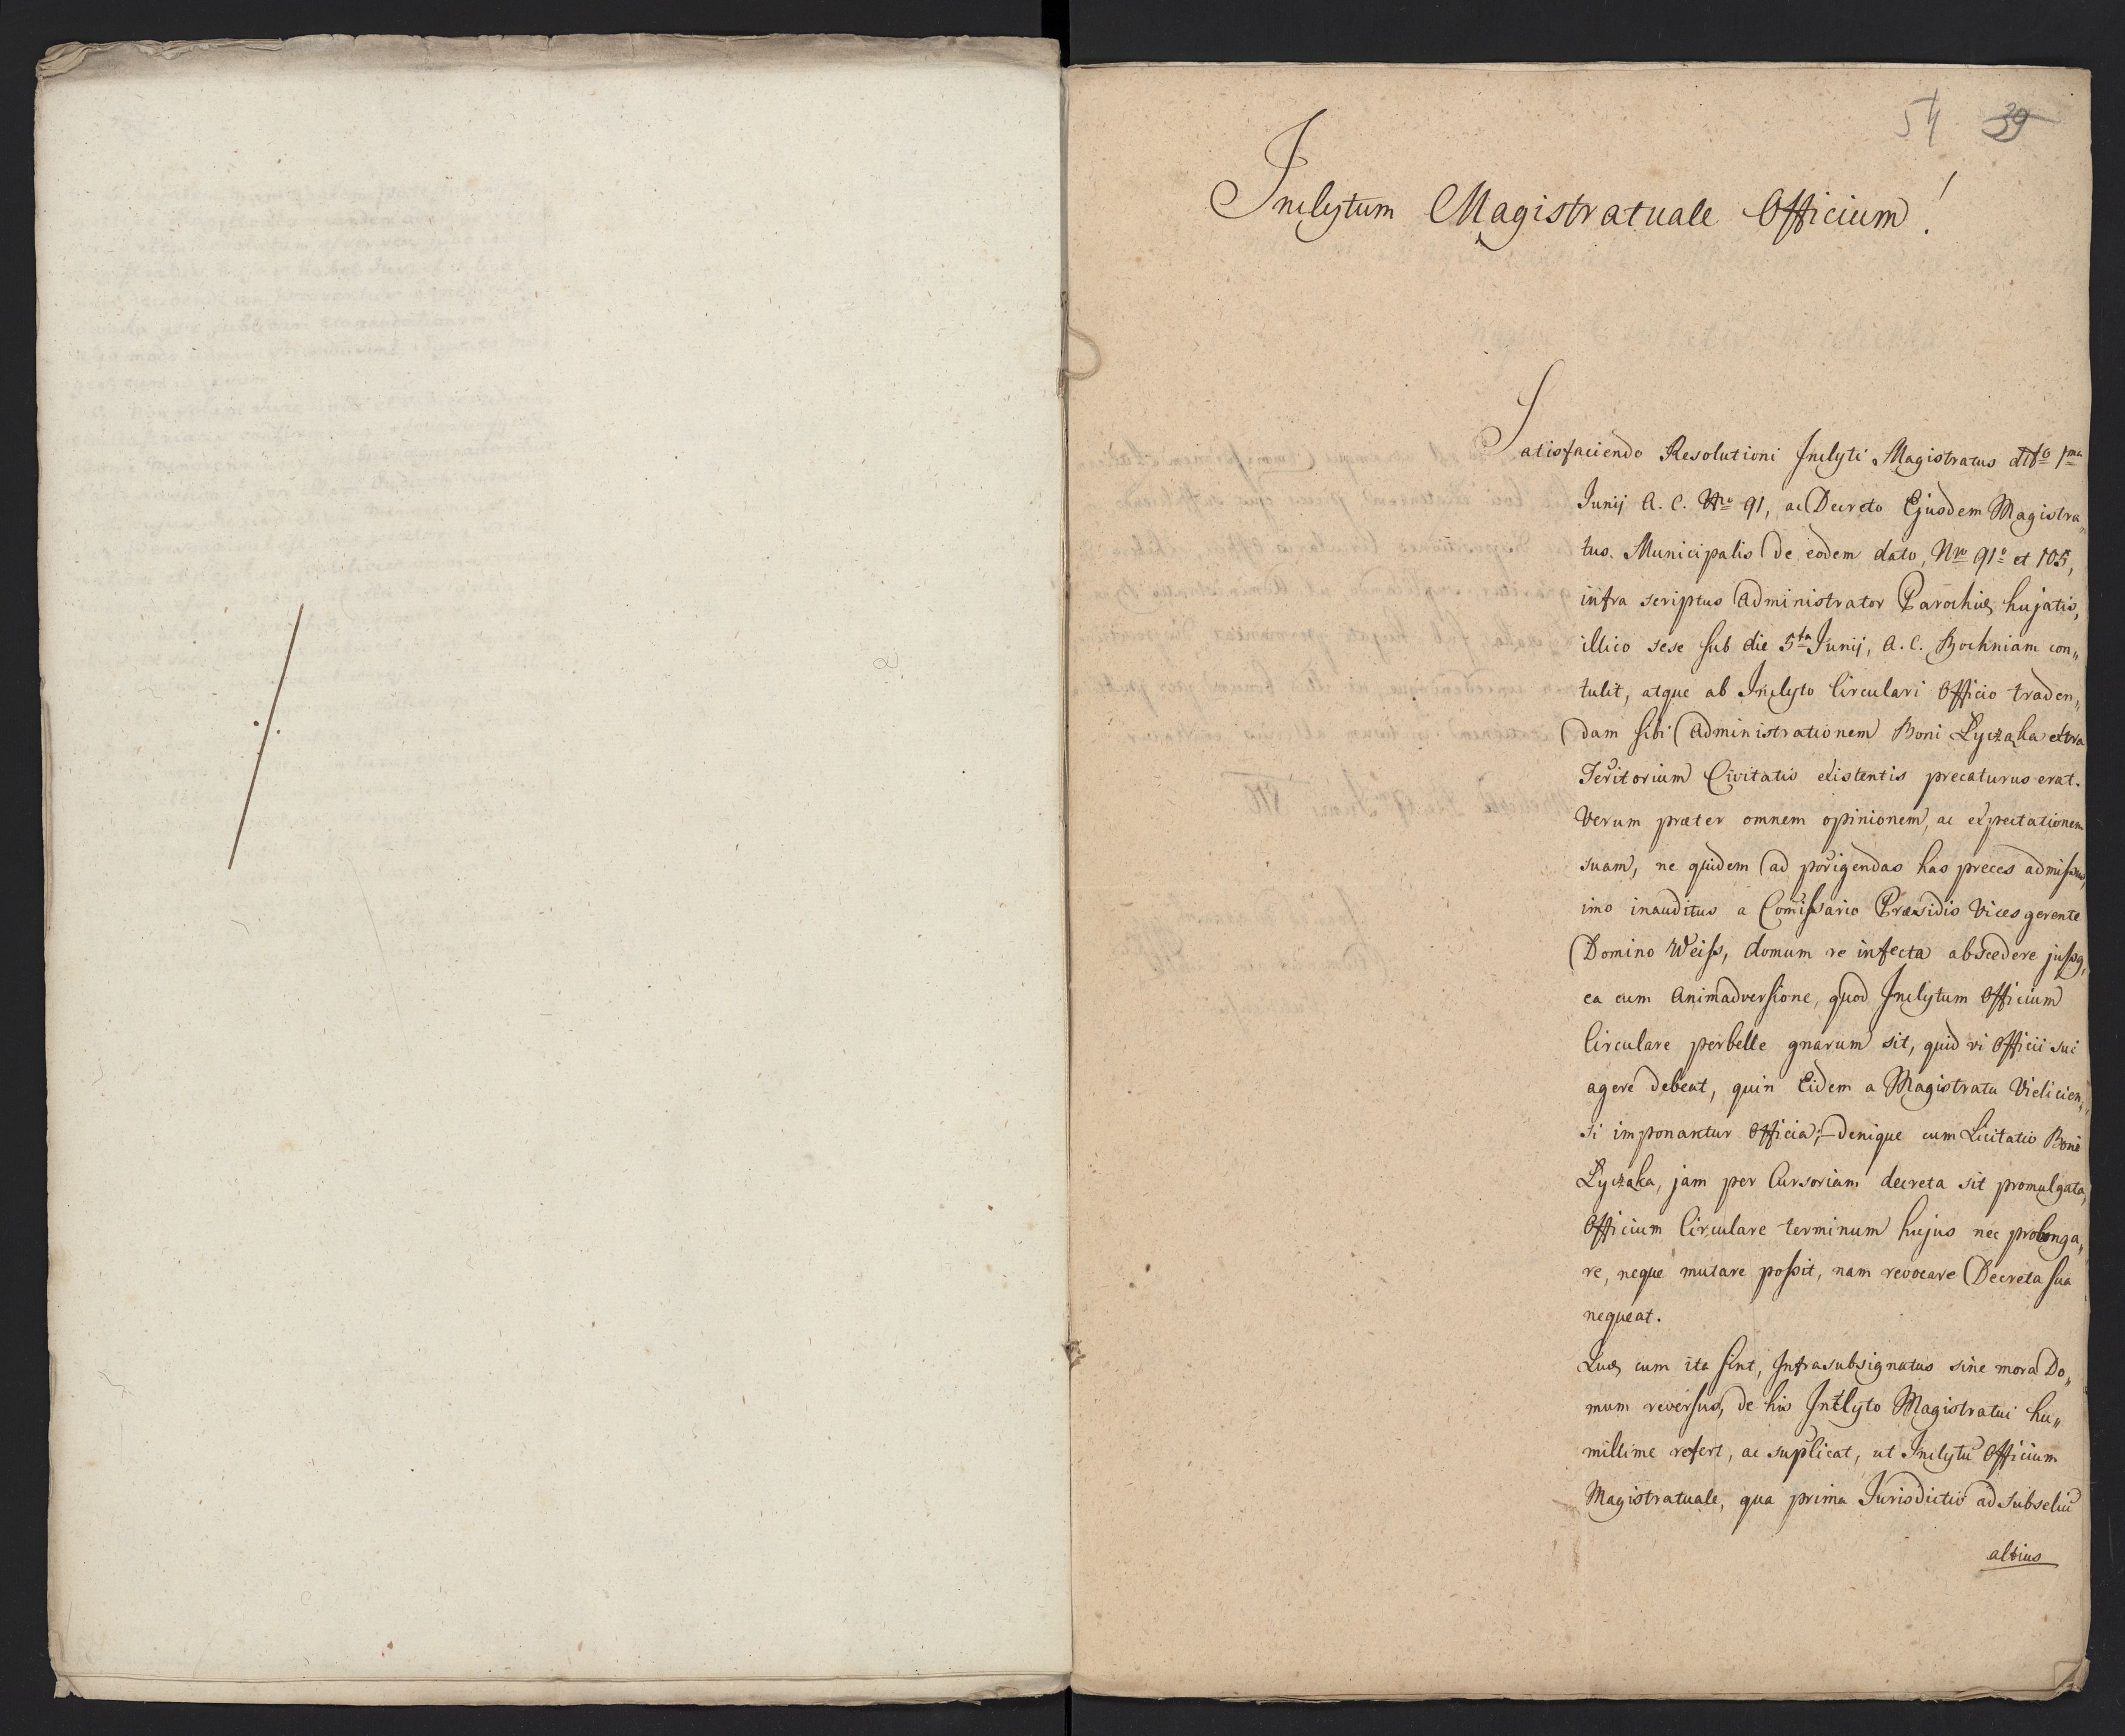 54 39
Inclytum Magistratuale Officium!
Satisfaciendo Resolutioni Inclyti Magistratus dtto 1ma
Junij A. C. Nro 91, ac Decreto Ejusdem Magistra„
tus Municipalis de eodem dato, Nro 91o et 105,
infra scriptus Administrator Parochiæ hujatis,
illico sese sub die 5ta Junij, A. C. Bochniam con„
tulit, atque ab Inclyto Circulari Officio traden„
dam sibi Administrationem Boni Lyczaka extra
Teritorium Civitatis existentis precaturus erat.
Verum præter omnem opinionem, ac expectationem
suam, ne quidem ad porigendas has preces admissus,
imo inauditus a Comissario Præsidis Vices gerente
Domino Weiss, domum re infecta abscedere jussq,
ea cum Animadversione, quod Inclytum Officium
Circulare perbelle gnarum sit, quid vi Officii sui
agere debeat, quin Eidem a Magistratu Vielicien„
si imponantur Officia; – denique cum Licitatio Boni
Lyczaka, jam per Cursoriam decreta sit promulgata,
Officium Circulare terminum hujus nec prolonga„
re, neque mutare possit, nam revocare Decreta sua
nequeat.
Quæ cum ita sint, Infrasubsignatus sine mora Do„
mum reversus, de his Inclyto Magistratui hu„
millime refert, ac suplicat, ut Inclytu Officium
Magistratuale, qua prima Jurisdictio ad subseliu
altius